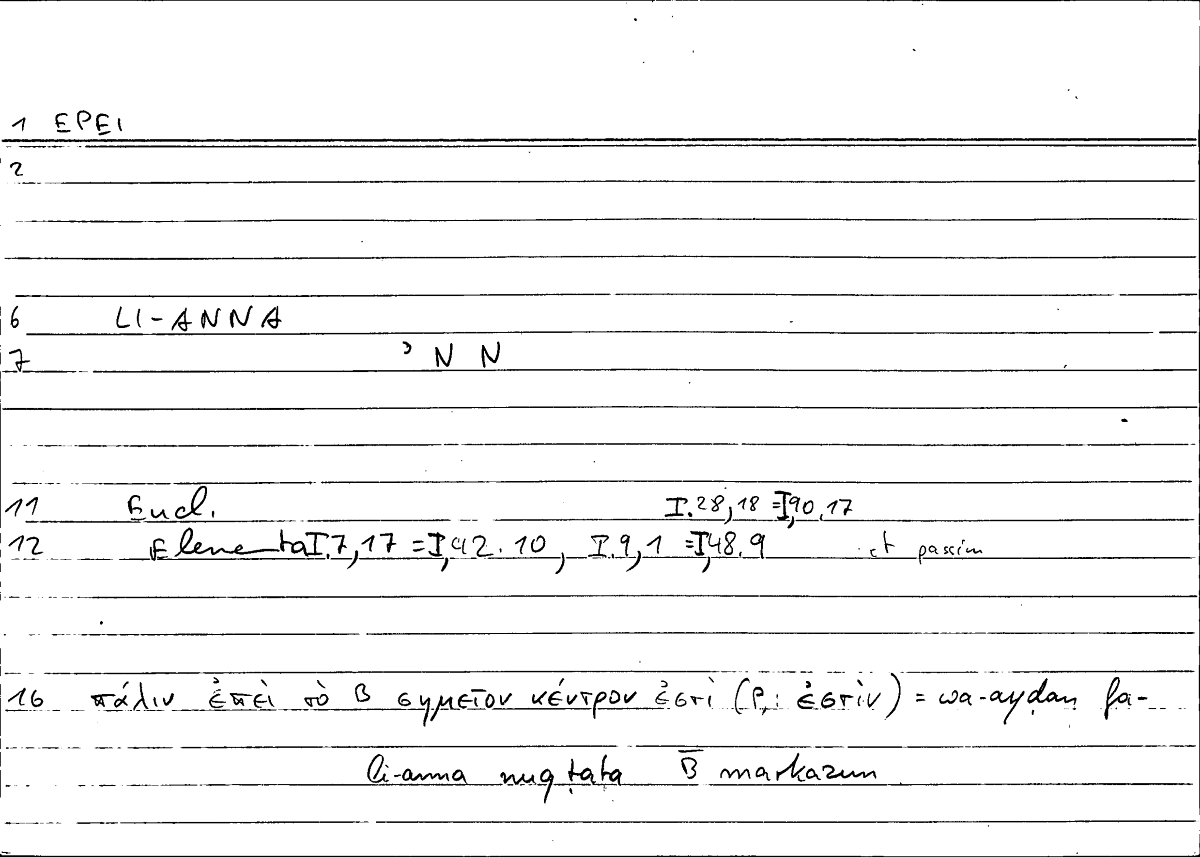 1 EPEI
2
6 LI-ANNA
7 ʾ N N
11 Eucl. I.28,18 = I,90.17
12 Elementa I.7,17 = I,42.10, I.9,1 = I,48.9 et passim
16 πάλιν ἐπεὶ τὸ Β σημεῖον κέντρον ἐστὶ (P,: ἐστὶν) = wa-ayḍan fa-
li-anna nuqṭata B̅ markazun